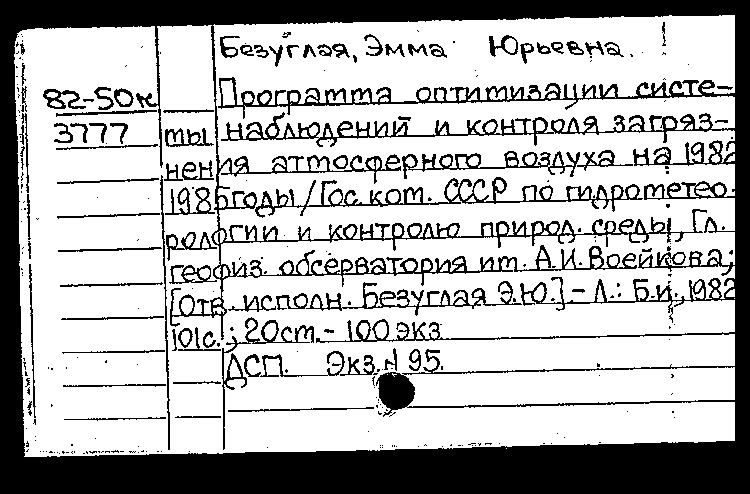 Безуглая, Эмма Юрьевна.
82-50к Программа оптимизации систе-
3777 мы наблюдений и контроля загряз-
нения атмосферного воздуха на 1982
1985годы/Гос.ком. СССР по гидрометео-
рологии и контролю природ. среды, Гл.
геофиз. обсерватория им. А.И.Воейкова;
[Отв.исполн. Безуглая Э.Ю.]-Л.: Б.и.,1982
101с.; 20см.- 100экз
ДСП. Экз.№95.